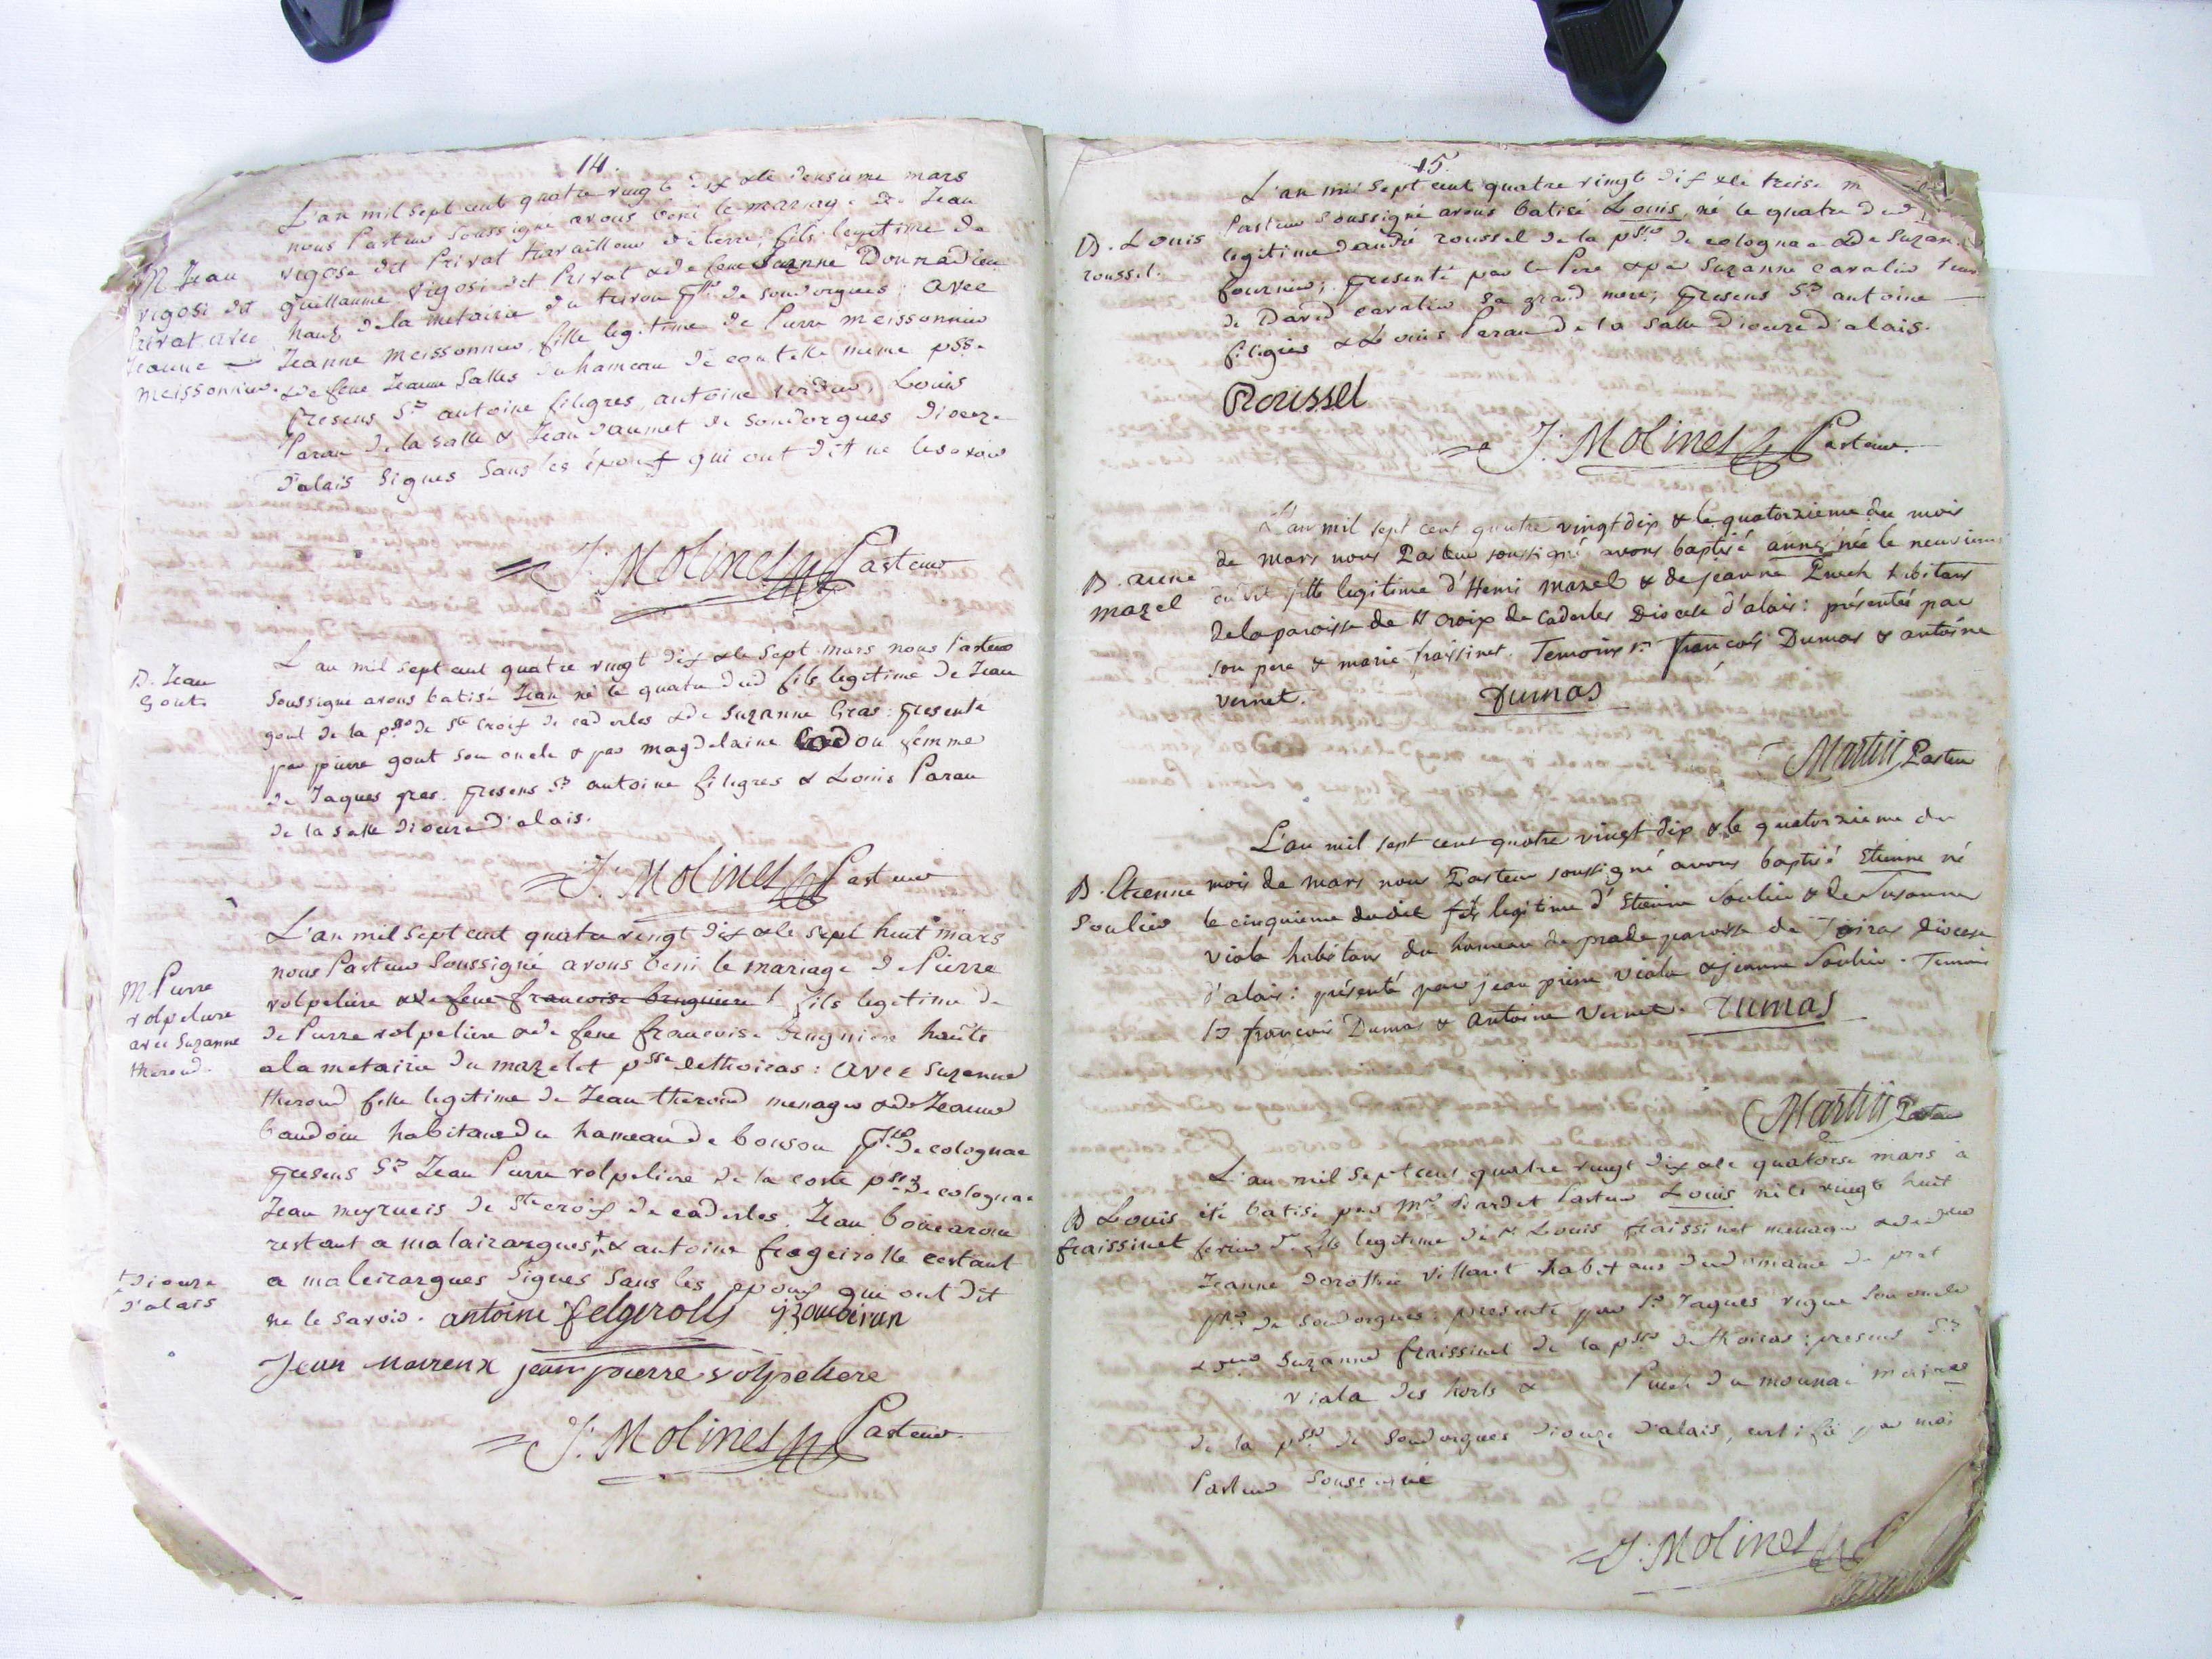 14.
L'an mil sept cent quatre vingt dix & le deusieme mars
nous Pasteur Soussigné avons beni le mariage de Jean
vigose dit Privat travailleur de terre, fils legitime de
Guillaume vigosi dit Privat & de feue Suzanne Dounadieu
M. Jean
vigosi dit
Privat avec
Jeanne
meissonnier.
de la metairie du de soudorgues : avec
Jeanne meissonnier, fille legitime de Pierre meissonnier
& de feue Jeanne Salles du hameau de meme psse
Presens Sr antoine filigres, antoine verdier, Louis
Paran de la salle & Jean daumet de Soudorgues dioceze
d'alais Signes Sans les épouf qui ont dit ne le savoir
J. Molines Pasteur
B. Jean
Gout.
L'an mil sept cent quatre vingt dix & le Sept mars nous Pasteur
Soussigné avons batisé Jean né le quatre dud fils legitime de Jean
gout de la psse de Ste Croix de caderles & de Suzanne Gras : presenté
par pierre gout son oncle & par magdelaine femme
de Jaques gras. presens Sr antoine filigres & Louis Paran
de la salle dioceze d'alais.
J. Molines Pasteur
M. Pierre
volpeliere
avec Suzanne
therond.
L'an mil Sept cent quatre vingt dix & le sept huit mars
nous Pasteur Soussigné avons beni le mariage de Pierre
volpeliere & de feue francoise bruguiere fils legitime de
de Pierre volpeliere & de feue francoise bruguiere
a la metairie du mazelet psse dethoiras : avec Suzanne
therond fille legitime de Jean therond menager & de Jeanne
baudoin habitans du hameau de bouzou psse de colognac
presens Sr Jean Pierre volpeliere de la coste psse de colognac
Jean meyrueis de Ste croix de caderles. Jean
restant a malairargues + & antoine restant
a maleirargues Signes Sans les epouf qui ont dit
ne le savoir. antoine felgerolles
+ Dioceze
d'alais
Jean jean pierre volpeliere
J. Molines Pasteur
15.
B. Louis
roussel.
L'an mil Sept cent quatre vingt dix & le treise m
Pasteur Soussigné avons batisé Louis, né le quatre dud
legitime d'andré roussel de la psse de colognac & de Suzan
fournier; presenté par le Pere & par Suzanne cavalier
de David cavalier Sa grand mere; presens Sr antoine
filigres & Louis Paran de la Salle Dioceze d'alais.
Roussel
J. Molines Pasteur.
B. anne
mazel
L'an mil sept cent quatre vingt dix & le quatorzieme du mois
de mars nous Pasteur soussigné avons baptisé anne née le neuvieme
du dit fille legitime d'Henri mazel & de jeanne Puech habitans
de la paroisse de Ste Croix de Caderles Diocese d'alais : présentée par
son pere & marie fraissinet. Temoins Sr françois Dumas & antoine
vernet. Dumas
Martin Pasteur
B. Etienne
Soulier
L'an mil sept cent quatre vingt dix & le quatorzieme du
mois de mars nous Pasteur soussigné avons baptisé Etienne né
le cinquieme du dit fils legitime d'Etienne Soulier & de Susanne
Viala habitans du hameau de prade paroisse de Toiras Diocese
d'alais : présenté par jean pierre Viala & jeanne Soulier. Temoins
Sr françois Dumas & Antoine Vernet. Dumas
Martin Pasteur
B Louis
fraissinet
L'an mil Sept cent quatre vingt dix & le quatorse mars a
été batisé par Mr Bardet Pasteur Louis né le vingt huit
fevrier fils legitime de Sr Louis fraissinet menager & de
Jeanne Dorothée Villaret habitans du domaine de prat
psse de Soudorgues : presenté par Sr Jaques vigne Son oncle
& Suzanne fraissinet de la psse de thoiras : presens Srs
Viala des horts & Puech du mounai
de la psse de Soudorgues Dioceze d'alais, certifié par moi
Pasteur Soussigné
J. Molines